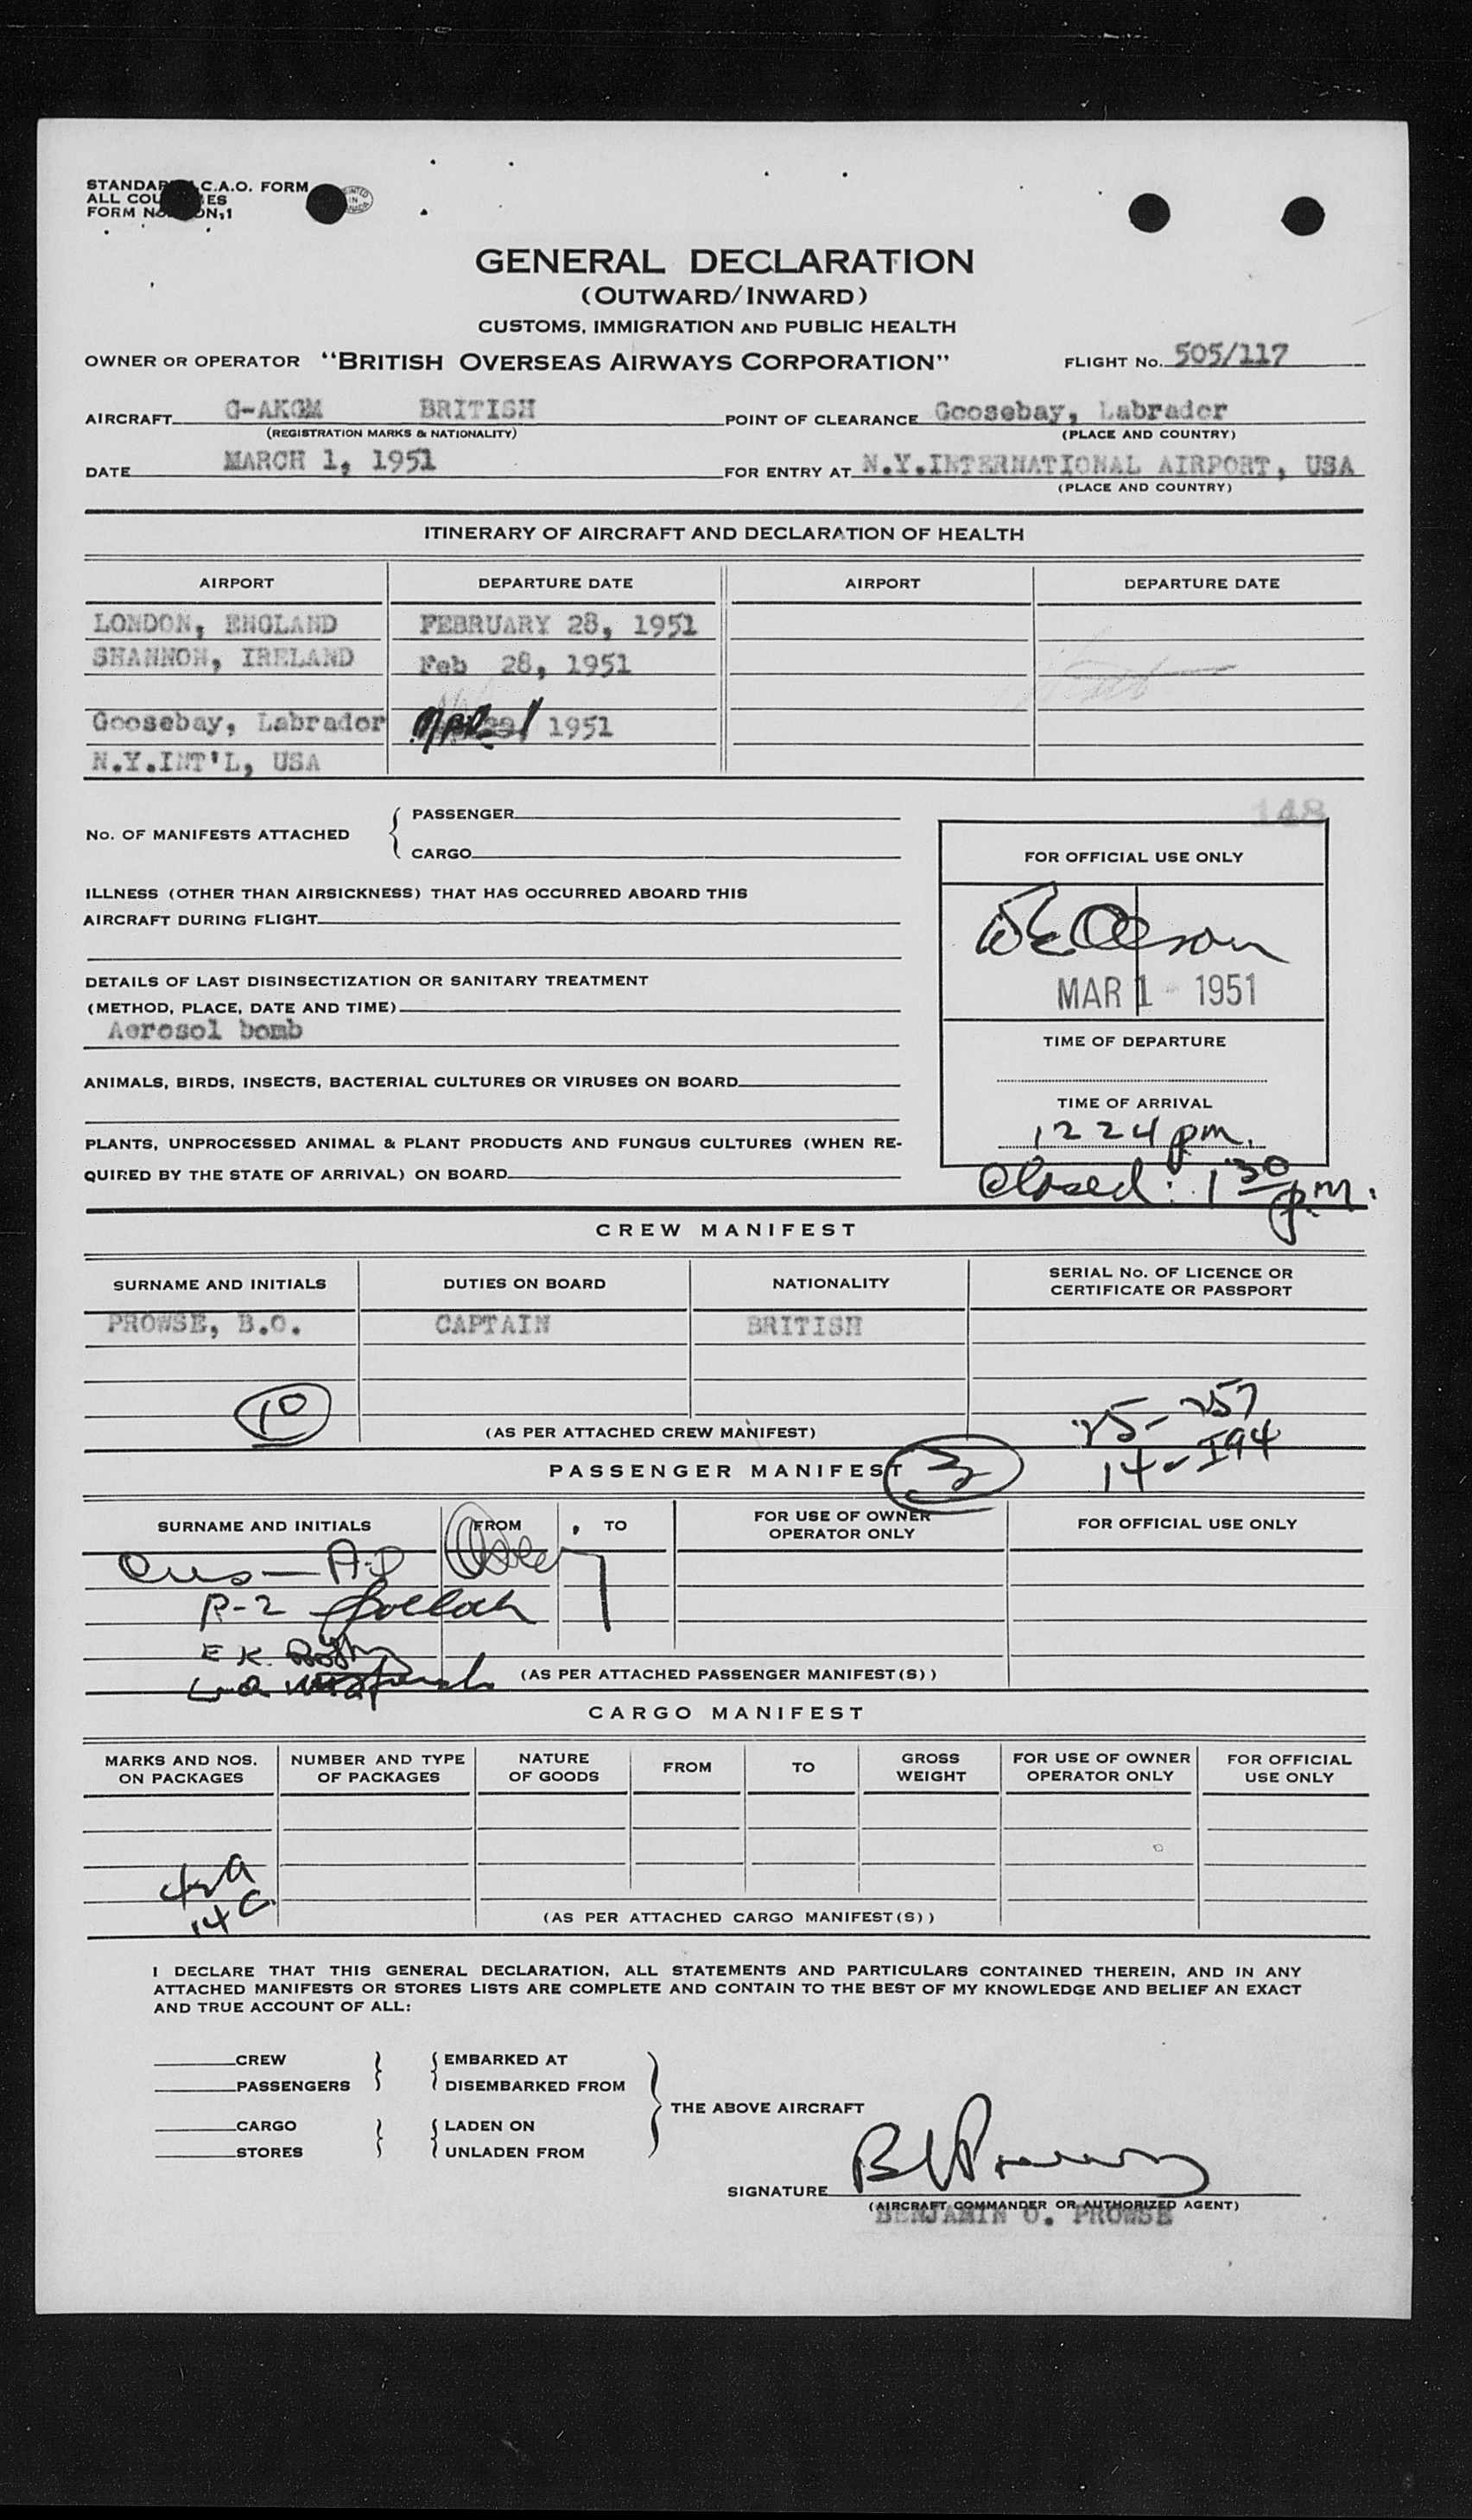 STANDARD C.A.O. FORM
ALL COU ES
FORM No. ON,1
PRINTED IN CANADA
GENERAL DECLARATION
(OUTWARD/INWARD)
CUSTOMS, IMMIGRATION AND PUBLIC HEALTH
OWNER OR OPERATOR "BRITISH OVERSEAS AIRWAYS CORPORATION" FLIGHT No. 505/117
AIRCRAFT G-AKGM BRITISH POINT OF CLEARANCE Goosebay, Labrador
(REGISTRATION MARKS & NATIONALITY) (PLACE AND COUNTRY)
DATE MARCH 1, 1951 FOR ENTRY AT N.Y.INTERNATIONAL AIRPORT, USA
(PLACE AND COUNTRY)
ITINERARY OF AIRCRAFT AND DECLARATION OF HEALTH
AIRPORT DEPARTURE DATE AIRPORT DEPARTURE DATE
LONDON, ENGLAND FEBRUARY 28, 1951
SHANNON, IRELAND Feb 28, 1951
Goosebay, Labrador MAR 1 1951
N.Y.INT'L, USA
148
No. OF MANIFESTS ATTACHED
PASSENGER
CARGO
ILLNESS (OTHER THAN AIRSICKNESS) THAT HAS OCCURRED ABOARD THIS
AIRCRAFT DURING FLIGHT
DETAILS OF LAST DISINSECTIZATION OR SANITARY TREATMENT
(METHOD, PLACE, DATE AND TIME)
Aerosol bomb
ANIMALS, BIRDS, INSECTS, BACTERIAL CULTURES OR VIRUSES ON BOARD
PLANTS, UNPROCESSED ANIMAL & PLANT PRODUCTS AND FUNGUS CULTURES (WHEN RE-
QUIRED BY THE STATE OF ARRIVAL) ON BOARD
FOR OFFICIAL USE ONLY
MAR 1 - 1951
TIME OF DEPARTURE
TIME OF ARRIVAL
12 24 pm.
Closed: 1 30 p.m.
CREW MANIFEST
SURNAME AND INITIALS DUTIES ON BOARD NATIONALITY SERIAL No. OF LICENCE OR
CERTIFICATE OR PASSPORT
PROWSE, B.O. CAPTAIN BRITISH
10
25- 257
14 - I94
(AS PER ATTACHED CREW MANIFEST)
PASSENGER MANIFEST
SURNAME AND INITIALS FROM TO FOR USE OF OWNER
OPERATOR ONLY FOR OFFICIAL USE ONLY
R-2
E K.
(AS PER ATTACHED PASSENGER MANIFEST(S))
CARGO MANIFEST
MARKS AND NOS.
ON PACKAGES NUMBER AND TYPE
OF PACKAGES NATURE
OF GOODS FROM TO GROSS
WEIGHT FOR USE OF OWNER
OPERATOR ONLY FOR OFFICIAL
USE ONLY
14 C
(AS PER ATTACHED CARGO MANIFEST(S))
I DECLARE THAT THIS GENERAL DECLARATION, ALL STATEMENTS AND PARTICULARS CONTAINED THEREIN, AND IN ANY
ATTACHED MANIFESTS OR STORES LISTS ARE COMPLETE AND CONTAIN TO THE BEST OF MY KNOWLEDGE AND BELIEF AN EXACT
AND TRUE ACCOUNT OF ALL:
CREW EMBARKED AT
PASSENGERS DISEMBARKED FROM
THE ABOVE AIRCRAFT
CARGO LADEN ON
STORES UNLADEN FROM
SIGNATURE B O Prowse
(AIRCRAFT COMMANDER OR AUTHORIZED AGENT)
BENJAMIN O. PROWSE